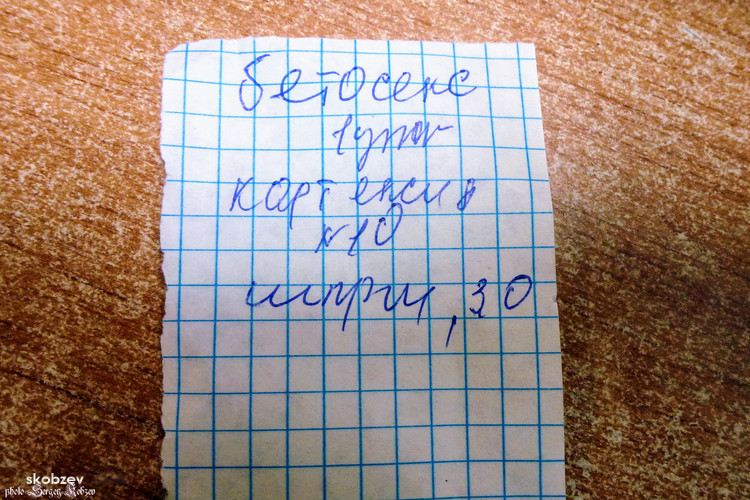 бетосенс
1 упак
картексин
№10
шприц, 30
skobzev
photo Sergey Kobzev